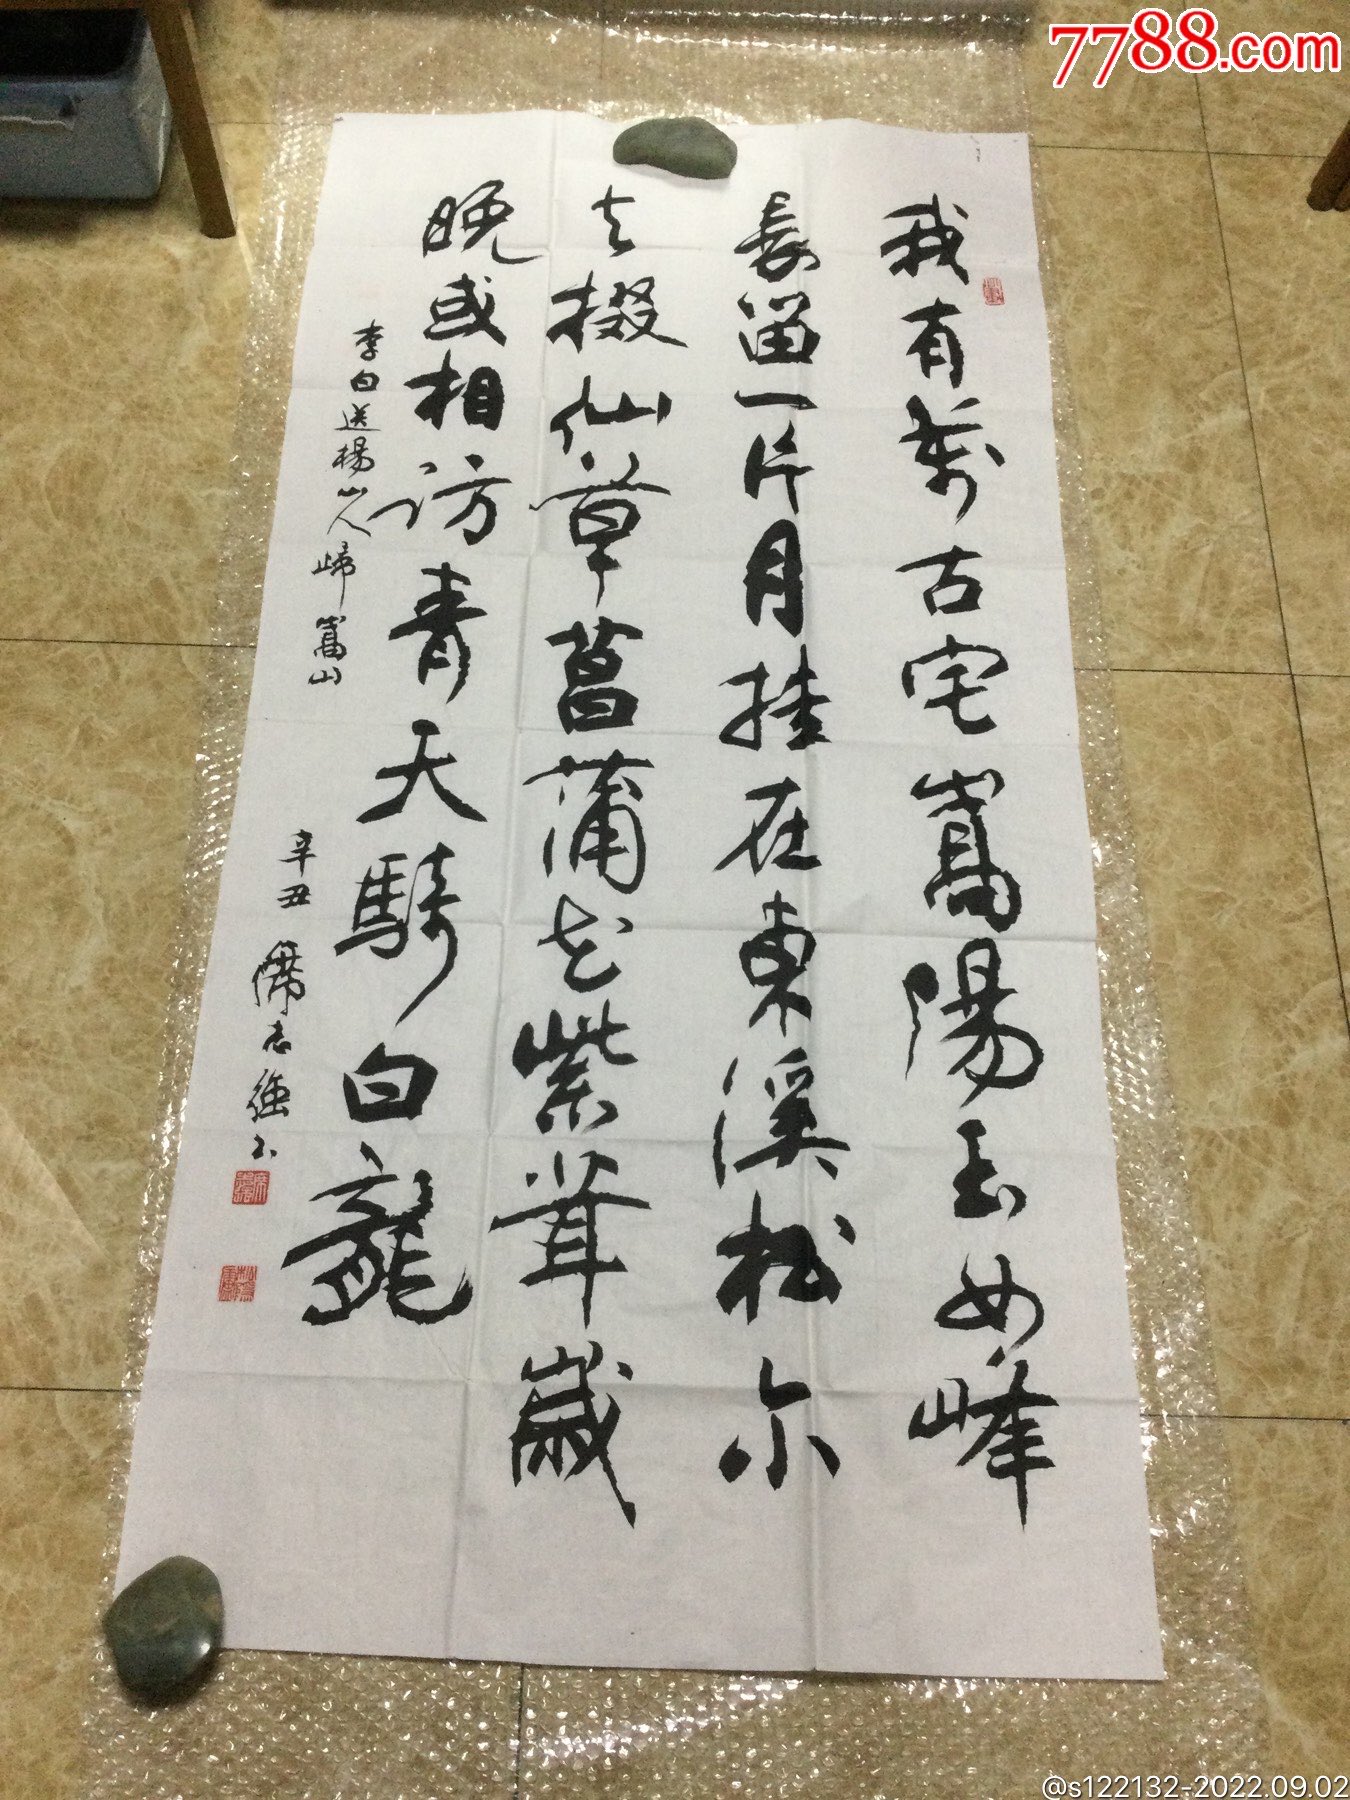 7788.com
我有萬古宅嵩陽玉女峰
長留一片月挂在東溪松尔
去掇仙草菖蒲花紫茸歲
晚或相訪青天騎白龍
李白送楊山人歸嵩山 辛丑 席志強书
@s122132-2022.09.02